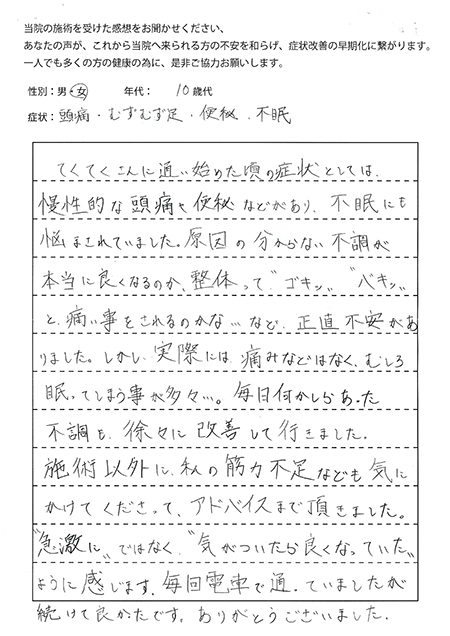 当院の施術を受けた感想をお聞かせください、
あなたの声が、これから当院へ来られる方の不安を和らげ、症状改善の早期化に繋がります。
一人でも多くの方の健康の為に、是非ご協力お願いします。
性別：男・女　年代：　10歳代
症状：頭痛・むずむず足・便秘・不眠
てくてくさんに通い始めた頃の症状としては、
慢性的な頭痛や便秘などがあり、不眠にも
悩まされていました。原因の分からない不調が
本当に良くなるのか、整体って"ゴキッ""バキッ"
と、痛い事をされるのかな…など、正直不安があ
りました。しかし、実際には、痛みなどはなく、むしろ
眠ってしまう事が多々…。毎日何かしらあった
不調も、徐々に改善して行きました。
施術以外に、私の筋力不足なども気に
かけてくださって、アドバイスまで頂きました。
"急激に"ではなく、"気がついたら良くなっていた"
ように感じます。毎回電車で通っていましたが
続けて良かったです。ありがとうございました。